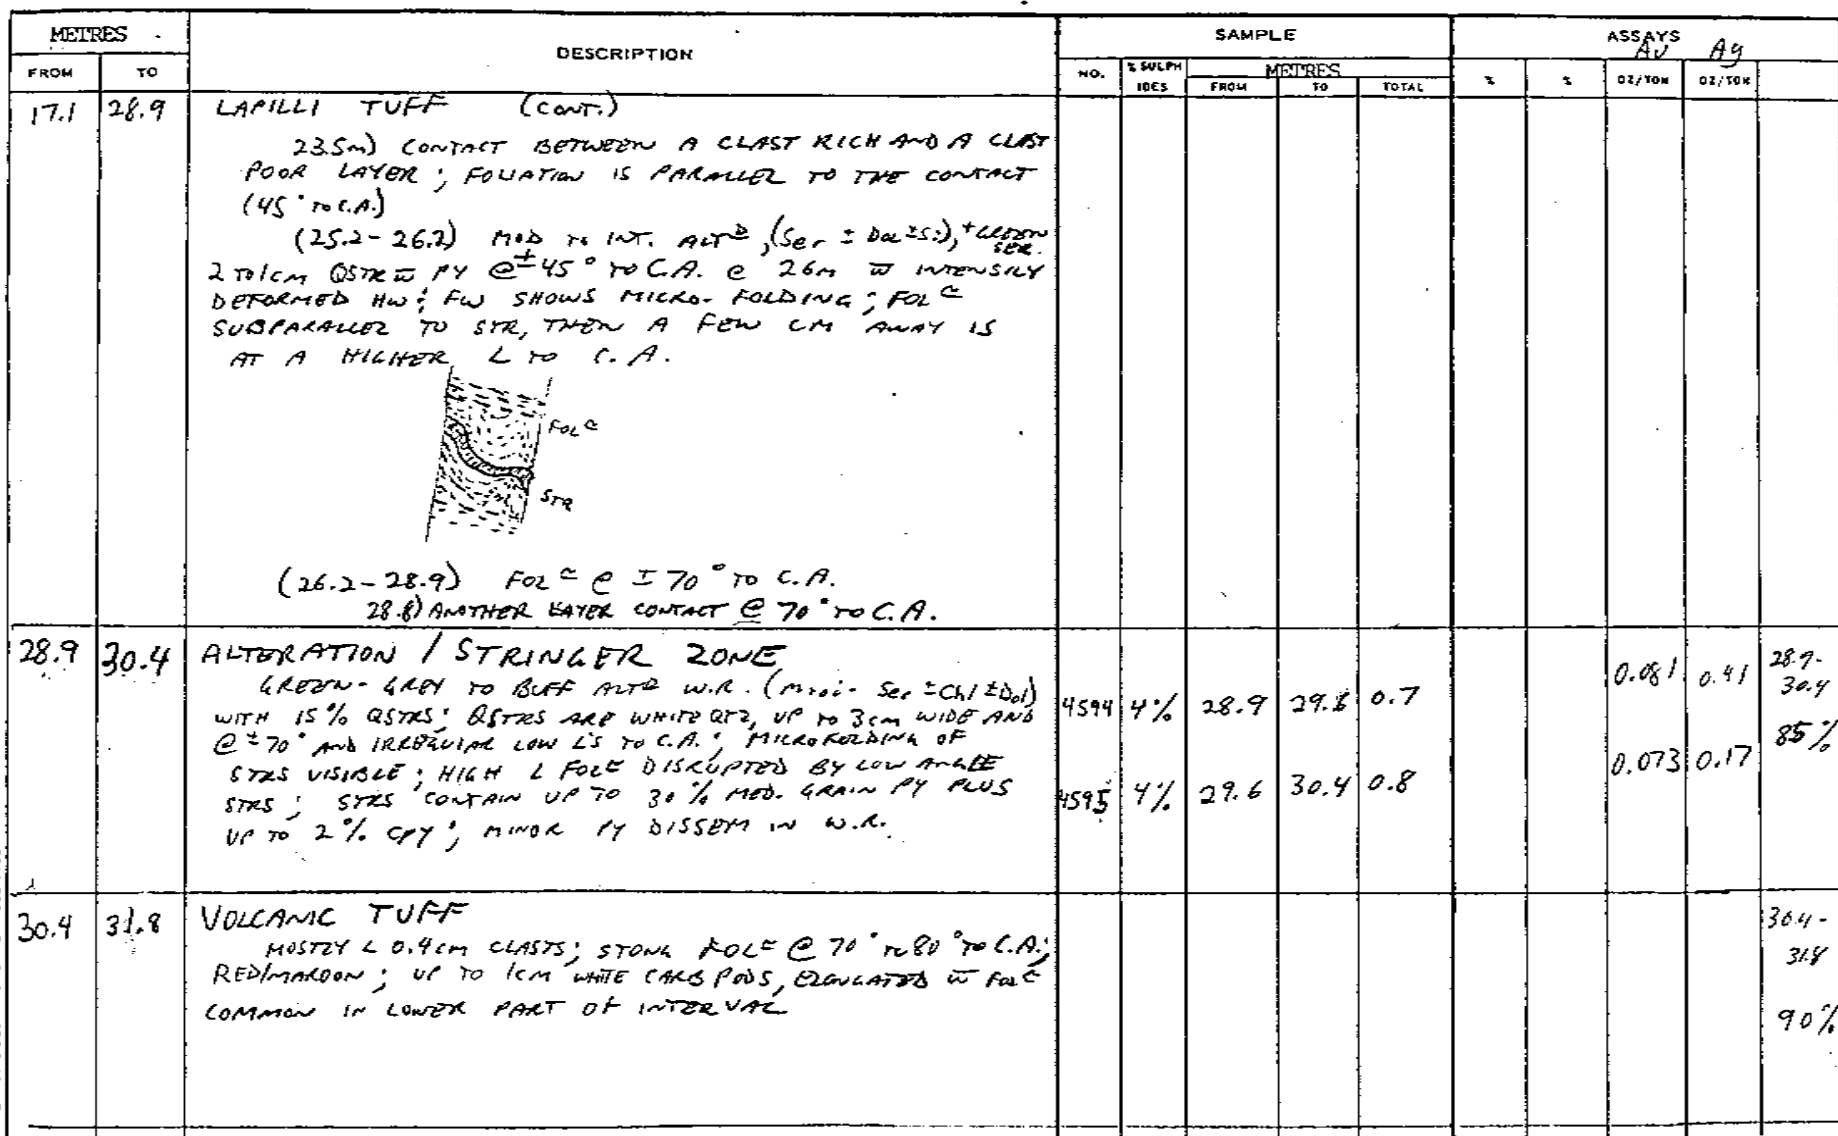 METRES
DESCRIPTION
SAMPLE
ASSAYS
Au Ag
FROM TO
NO. % SULPH IDES METRES FROM TO TOTAL % % OZ/TON OZ/TON
17.1 28.9 LAPILLI TUFF (CONT.)
23.5m) CONTACT BETWEEN A CLAST RICH AND A CLAST
POOR LAYER; FOLIATION IS PARALLEL TO THE CONTACT
(45° TO C.A.)
(25.2-26.2) MOD TO INT. ALTD, (Ser ± Dol ± Si), + GREEN SER.
2 TO 1cm QSTR w PY @ ±45° TO C.A. @ 26m w INTENSILY
DEFORMED HW; FW SHOWS MICRO-FOLDING; FOLN
SUBPARALLEL TO STR, THEN A FEW CM AWAY IS
AT A HIGHER L TO C.A.
FOLN
STR
(26.2-28.9) FOLN @ ±70° TO C.A.
28.8) ANOTHER LAYER CONTACT @ 70° TO C.A.
28.9 30.4 ALTERATION / STRINGER ZONE 28.9-
GREEN-GREY TO BUFF ALTD W.R. (Ser ± Chl ± Dol) 0.081 0.41 30.4
WITH 15% QSTRS; QSTRS ARE WHITE QTZ, UP TO 3cm WIDE AND 4594 4% 28.9 29.6 0.7
@ ±70° AND IRREGULAR LOW L'S TO C.A.; MICROFOLDING OF 85%
STRS VISIBLE; HIGH L FOLN DISRUPTED BY LOW ANGLE 0.073 0.17
STRS; STRS CONTAIN UP TO 30% MED. GRAIN PY PLUS 4595 4% 29.6 30.4 0.8
UP TO 2% CPY; MINOR PY DISSEM IN W.R.
30.4 31.8 VOLCANIC TUFF 30.4-
MOSTLY < 0.4cm CLASTS; STONG FOLN @ 70° TO 80° TO C.A.; 31.8
RED/MAROON; UP TO 1cm WHITE CARB PODS, ELONGATED w FOLN
COMMON IN LOWER PART OF INTERVAL 90%